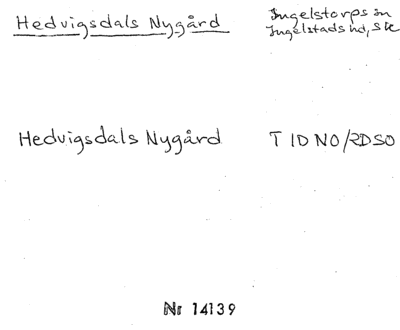 Hedvigsdals Nygård
Ingelstorps sn
Ingelstads hd, Sk
Hedvigsdals Nygård
T ID NO/RDSO
Nr 14139